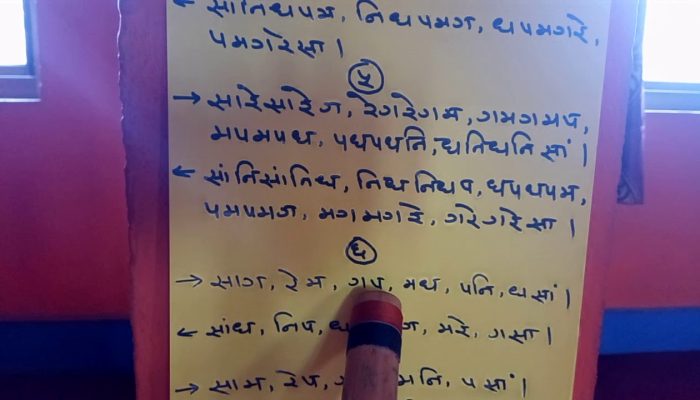 ← सांनिधपम, निधपमग, धपमगरे,
पमगरेसा।
५
→ सारेसारेग, रेगरेगम, गमगमप,
मपमपध, पधपधनि, धनिधनि सां।
← सांनिसांनिध, निधनिधप, धपधपम,
पमपमग, मगमगरे, गरेगरेसा।
६
→ साग, रेम, गप, मध, पनि, धसां।
← सांध, निप, मरे, गसा।
→ साम, रेप, मनि, पसां।